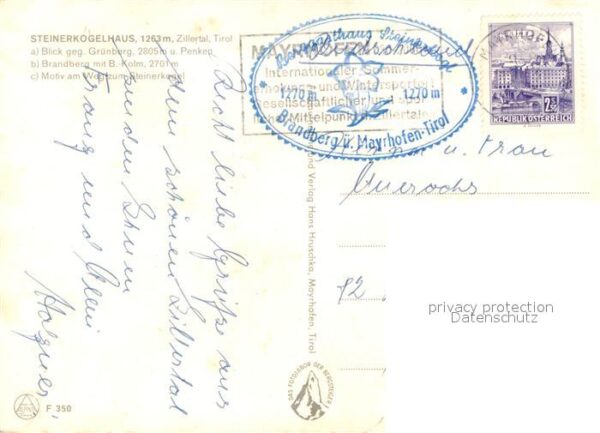 STEINERKOGELHAUS, 1263 m, Zillertal, Tirol
a) Blick geg. Grünberg, 2805 m u. Penken
b) Brandberg mit B. Kolm, 2701 m
c) Motiv am Weg zum Steinerkogel
Recht liebe Grüße aus
dem schönen Zillertal
senden Ihnen
Franz und
Deutschland
MAYRHOFEN
Internationaler Sommer-
und Wintersport
Gesellschaftlicher und
Mittelpunkt Zillertales
Berggasthaus Steinerkogl
1270 m
1270 m
Brandberg ü. Mayrhofen-Tirol
MAYRHOFEN
2.50
REPUBLIK ÖSTERREICH
u. Frau
82
und Verlag Hans Hruschka, Mayrhofen, Tirol
DAS FOTOLABOR DER BERGSTEIGER
F 350
privacy protection
Datenschutz